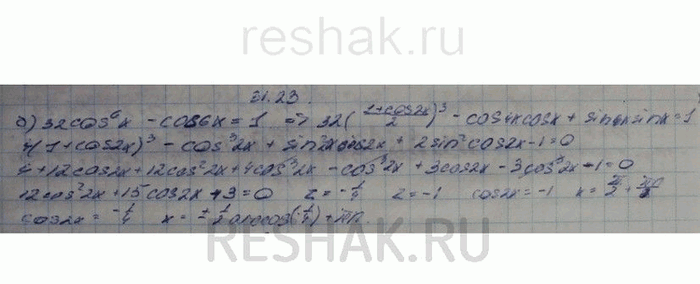 reshak.ru
21.23
б) 32cos⁶x - cos6x = 1 => 32((1+cos2x)/2)³ - cos4xcosx + sin4xsinx = 1
4(1+cos2x)³ - cos³2x + sin²2xcos2x + 2sin²cos2x-1=0
4+12cos2x+12cos²2x+4cos³2x - cos³2x + 3cos2x - 3cos³2x - 1=0
12cos²2x+15cos2x+3=0 z=-1/4 z=-1 cos2x=-1 x=π/2+πn
cos2x=-1/4 x=±1/2arccos(-1/4)+πn.
RESHAK.RU